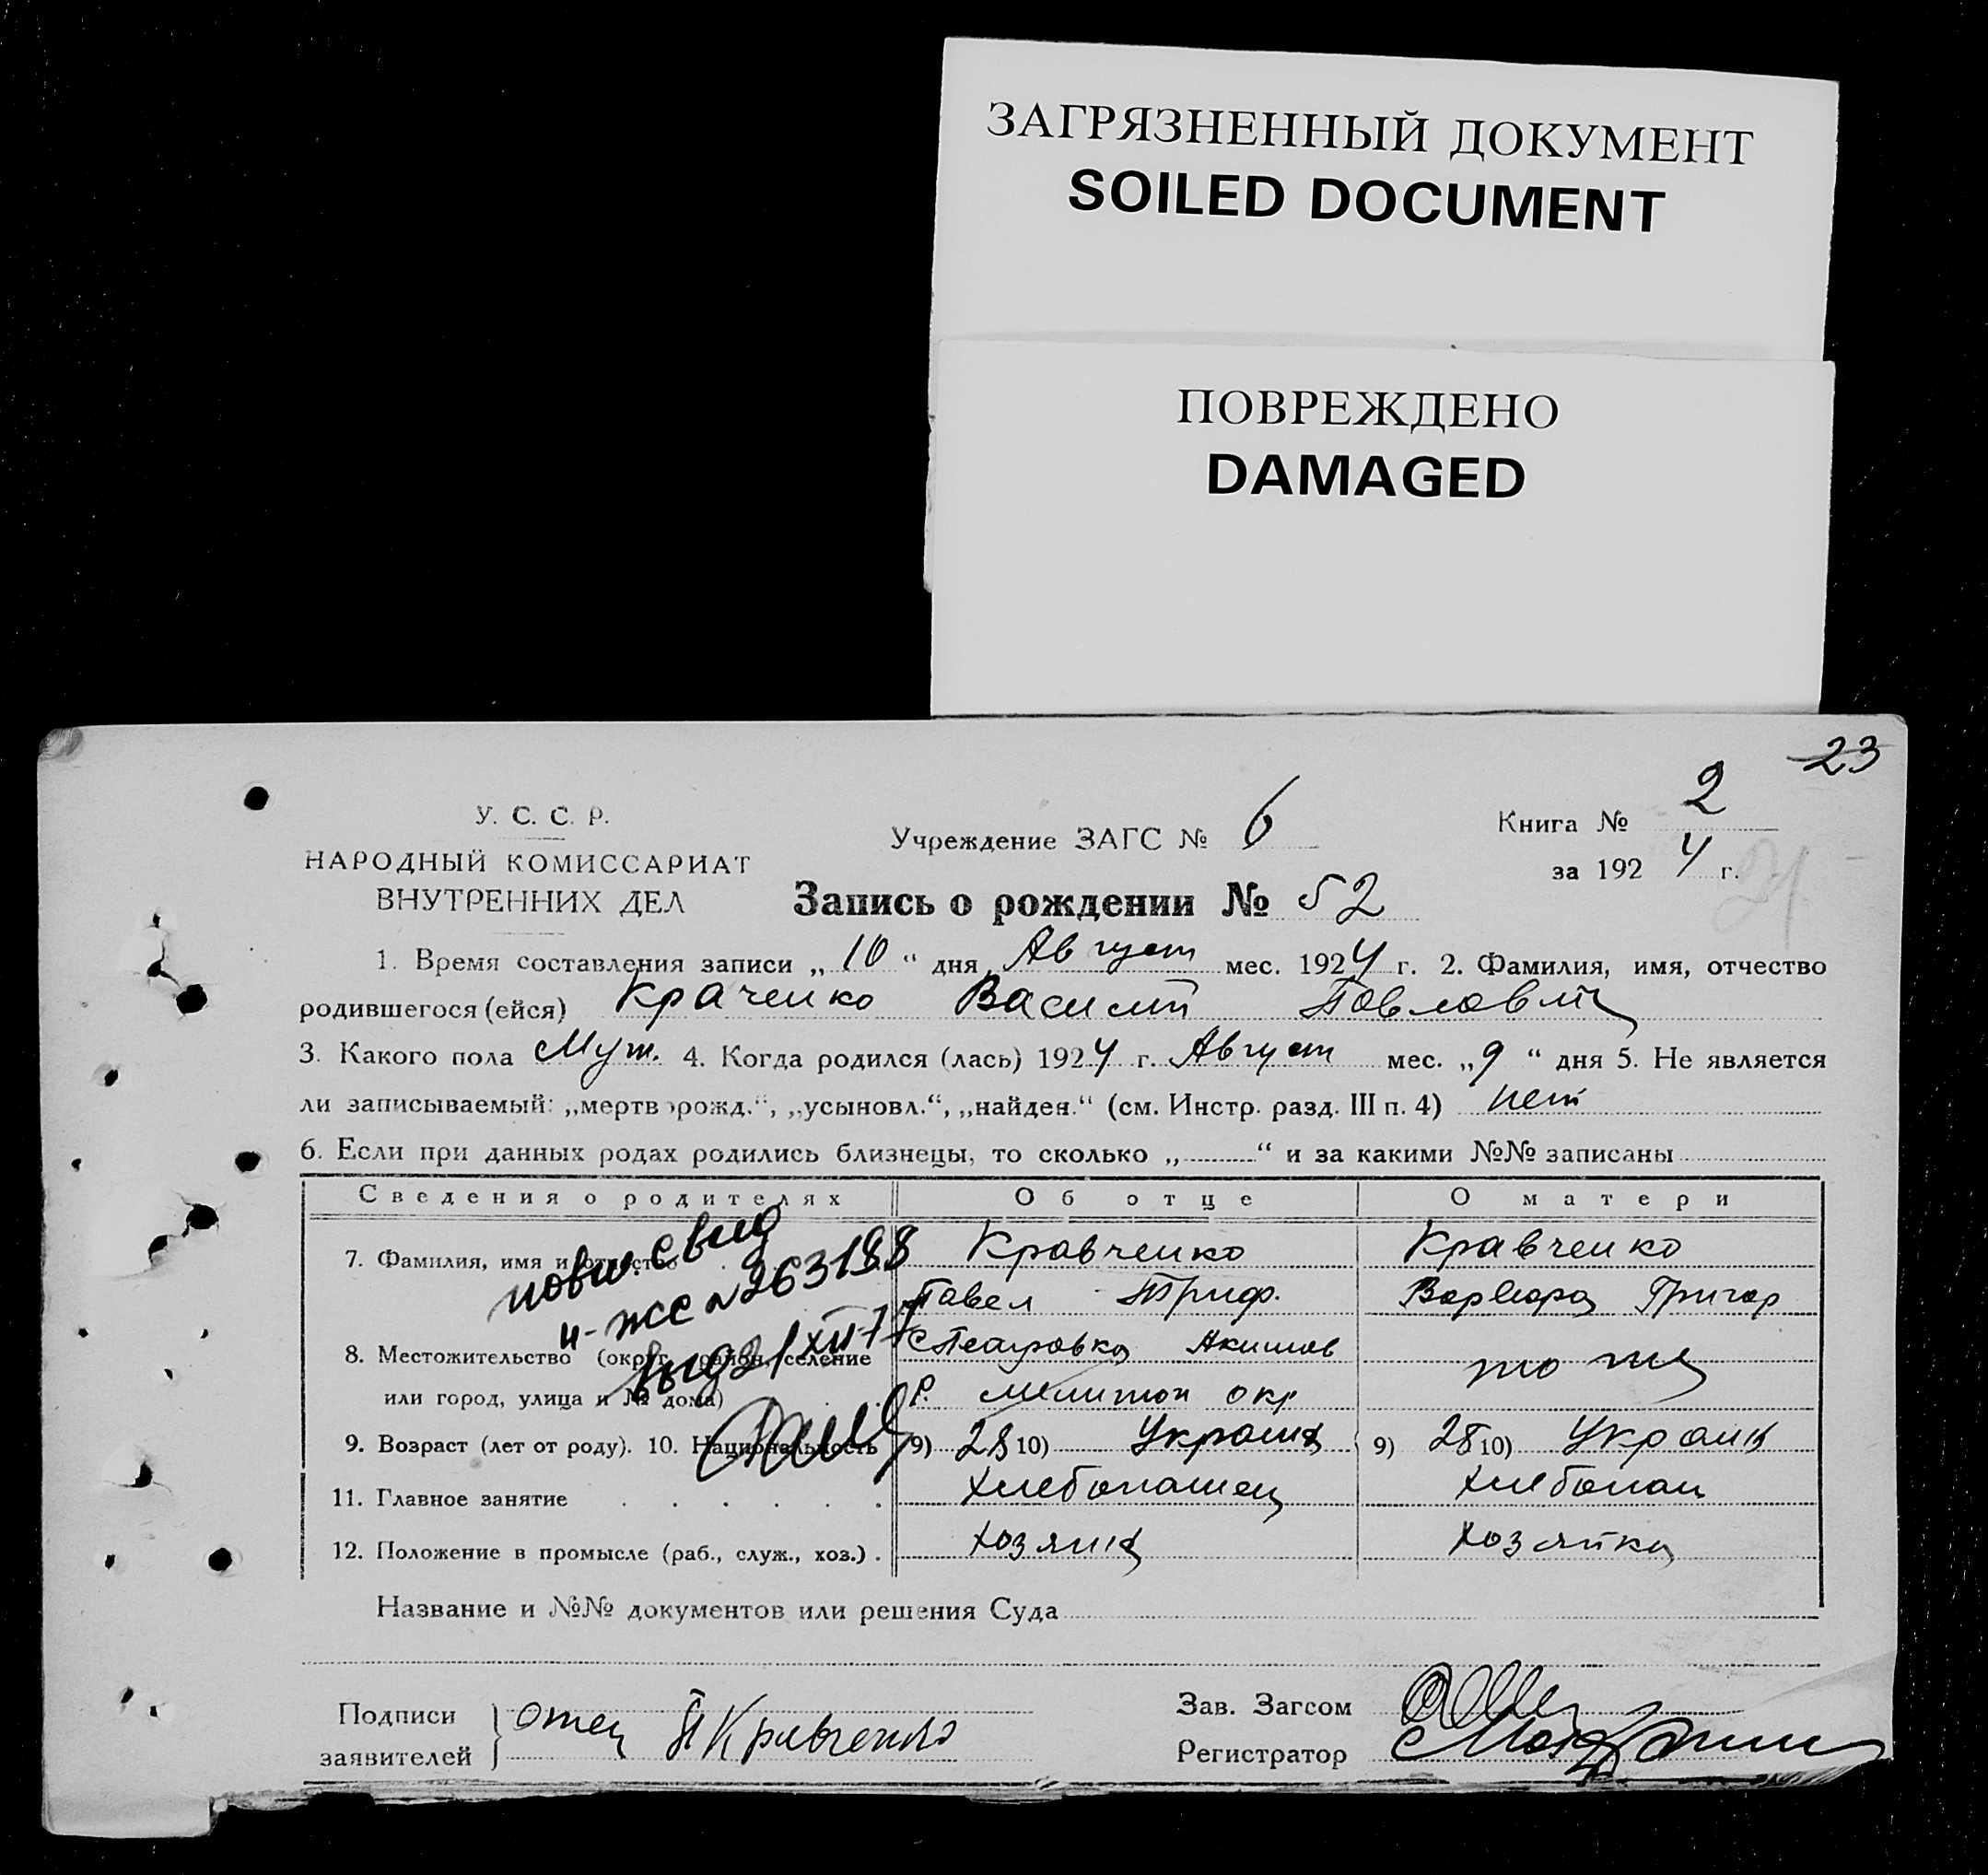 ЗАГРЯЗНЕННЫЙ ДОКУМЕНТ
SOILED DOCUMENT
ПОВРЕЖДЕНО
DAMAGED
23
У. С. С. Р.
НАРОДНЫЙ КОМИССАРИАТ
ВНУТРЕННИХ ДЕЛ
Учреждение ЗАГС № 6
Книга № 2
за 1924 г.
Запись о рождении № 52
1. Время составления записи „10“ дня Август мес. 1924 г. 2. Фамилия, имя, отчество
родившегося (ейся) Краченко Василий Павлович
3. Какого пола Муж. 4. Когда родился (лась) 1924 г. Август мес. „9“ дня 5. Не является
ли записываемый: „мертворожд.“, „усыновл.“, „найден.“ (см. Инстр. разд. III п. 4) нет
6. Если при данных родах родились близнецы, то сколько „ “ и за какими №№ записаны
Сведения о родителях Об отце О матери
7. Фамилия, имя и отчество Кравченко Кравченко
Павел Триф. Варвара Григор
8. Местожительство (округ, район, селение Акимов то же
или город, улица и № дома) р. Мелитоп окр
9. Возраст (лет от роду). 10. Национальность 9) 28 10) Украин 9) 28 10) Украин
11. Главное занятие хлебопашец хлебопаш
12. Положение в промысле (раб., служ., хоз.) хозяин хозяйка
повт. свид
н-же № 263188
выд 21/XII-77
Название и №№ документов или решения Суда
Подписи заявителей } отец П Кравченко
Зав. Загсом
Регистратор